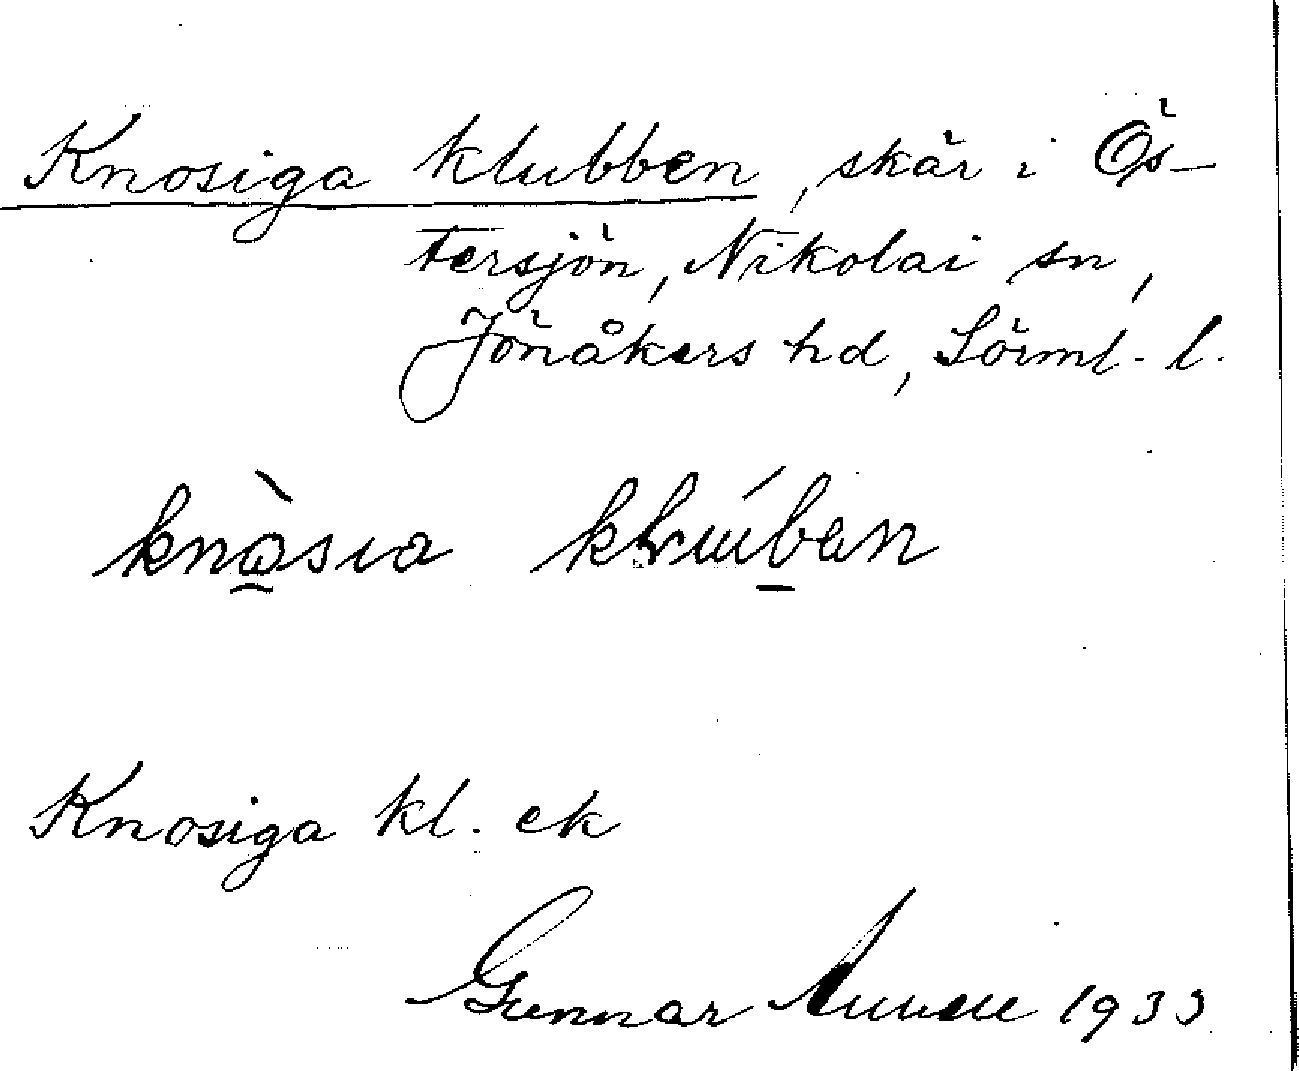 Knosiga klubben, skär i Ös-
tersjön, Nikolai sn,
Jönåkers hd, Sörml. l.
knàsıa
Knosiga kl. ek
Gunnar 1933